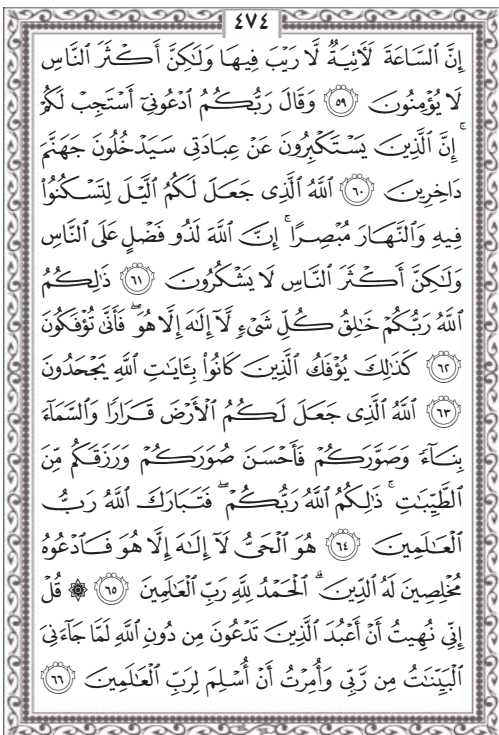 ٤٧٤
إِنَّ ٱلسَّاعَةَ لَأٓتِيَةٌ لَّا رَيْبَ فِيهَا وَلَٰكِنَّ أَكْثَرَ ٱلنَّاسِ
لَا يُؤْمِنُونَ ۝٥٩ وَقَالَ رَبُّكُمُ ٱدْعُونِىٓ أَسْتَجِبْ لَكُمْ
ۚ إِنَّ ٱلَّذِينَ يَسْتَكْبِرُونَ عَنْ عِبَادَتِى سَيَدْخُلُونَ جَهَنَّمَ
دَاخِرِينَ ۝٦٠ ٱللَّهُ ٱلَّذِى جَعَلَ لَكُمُ ٱلَّيْلَ لِتَسْكُنُوا۟
فِيهِ وَٱلنَّهَارَ مُبْصِرًا ۚ إِنَّ ٱللَّهَ لَذُو فَضْلٍ عَلَى ٱلنَّاسِ
وَلَٰكِنَّ أَكْثَرَ ٱلنَّاسِ لَا يَشْكُرُونَ ۝٦١ ذَٰلِكُمُ
ٱللَّهُ رَبُّكُمْ خَٰلِقُ كُلِّ شَىْءٍ لَّآ إِلَٰهَ إِلَّا هُوَ ۖ فَأَنَّىٰ تُؤْفَكُونَ
۝٦٢ كَذَٰلِكَ يُؤْفَكُ ٱلَّذِينَ كَانُوا۟ بِـَٔايَٰتِ ٱللَّهِ يَجْحَدُونَ
۝٦٣ ٱللَّهُ ٱلَّذِى جَعَلَ لَكُمُ ٱلْأَرْضَ قَرَارًا وَٱلسَّمَآءَ
بِنَآءً وَصَوَّرَكُمْ فَأَحْسَنَ صُوَرَكُمْ وَرَزَقَكُم مِّنَ
ٱلطَّيِّبَٰتِ ۚ ذَٰلِكُمُ ٱللَّهُ رَبُّكُمْ ۖ فَتَبَارَكَ ٱللَّهُ رَبُّ
ٱلْعَٰلَمِينَ ۝٦٤ هُوَ ٱلْحَىُّ لَآ إِلَٰهَ إِلَّا هُوَ فَٱدْعُوهُ
مُخْلِصِينَ لَهُ ٱلدِّينَ ۗ ٱلْحَمْدُ لِلَّهِ رَبِّ ٱلْعَٰلَمِينَ ۝٦٥ ۞ قُلْ
إِنِّى نُهِيتُ أَنْ أَعْبُدَ ٱلَّذِينَ تَدْعُونَ مِن دُونِ ٱللَّهِ لَمَّا جَآءَنِىَ
ٱلْبَيِّنَٰتُ مِن رَّبِّى وَأُمِرْتُ أَنْ أُسْلِمَ لِرَبِّ ٱلْعَٰلَمِينَ ۝٦٦